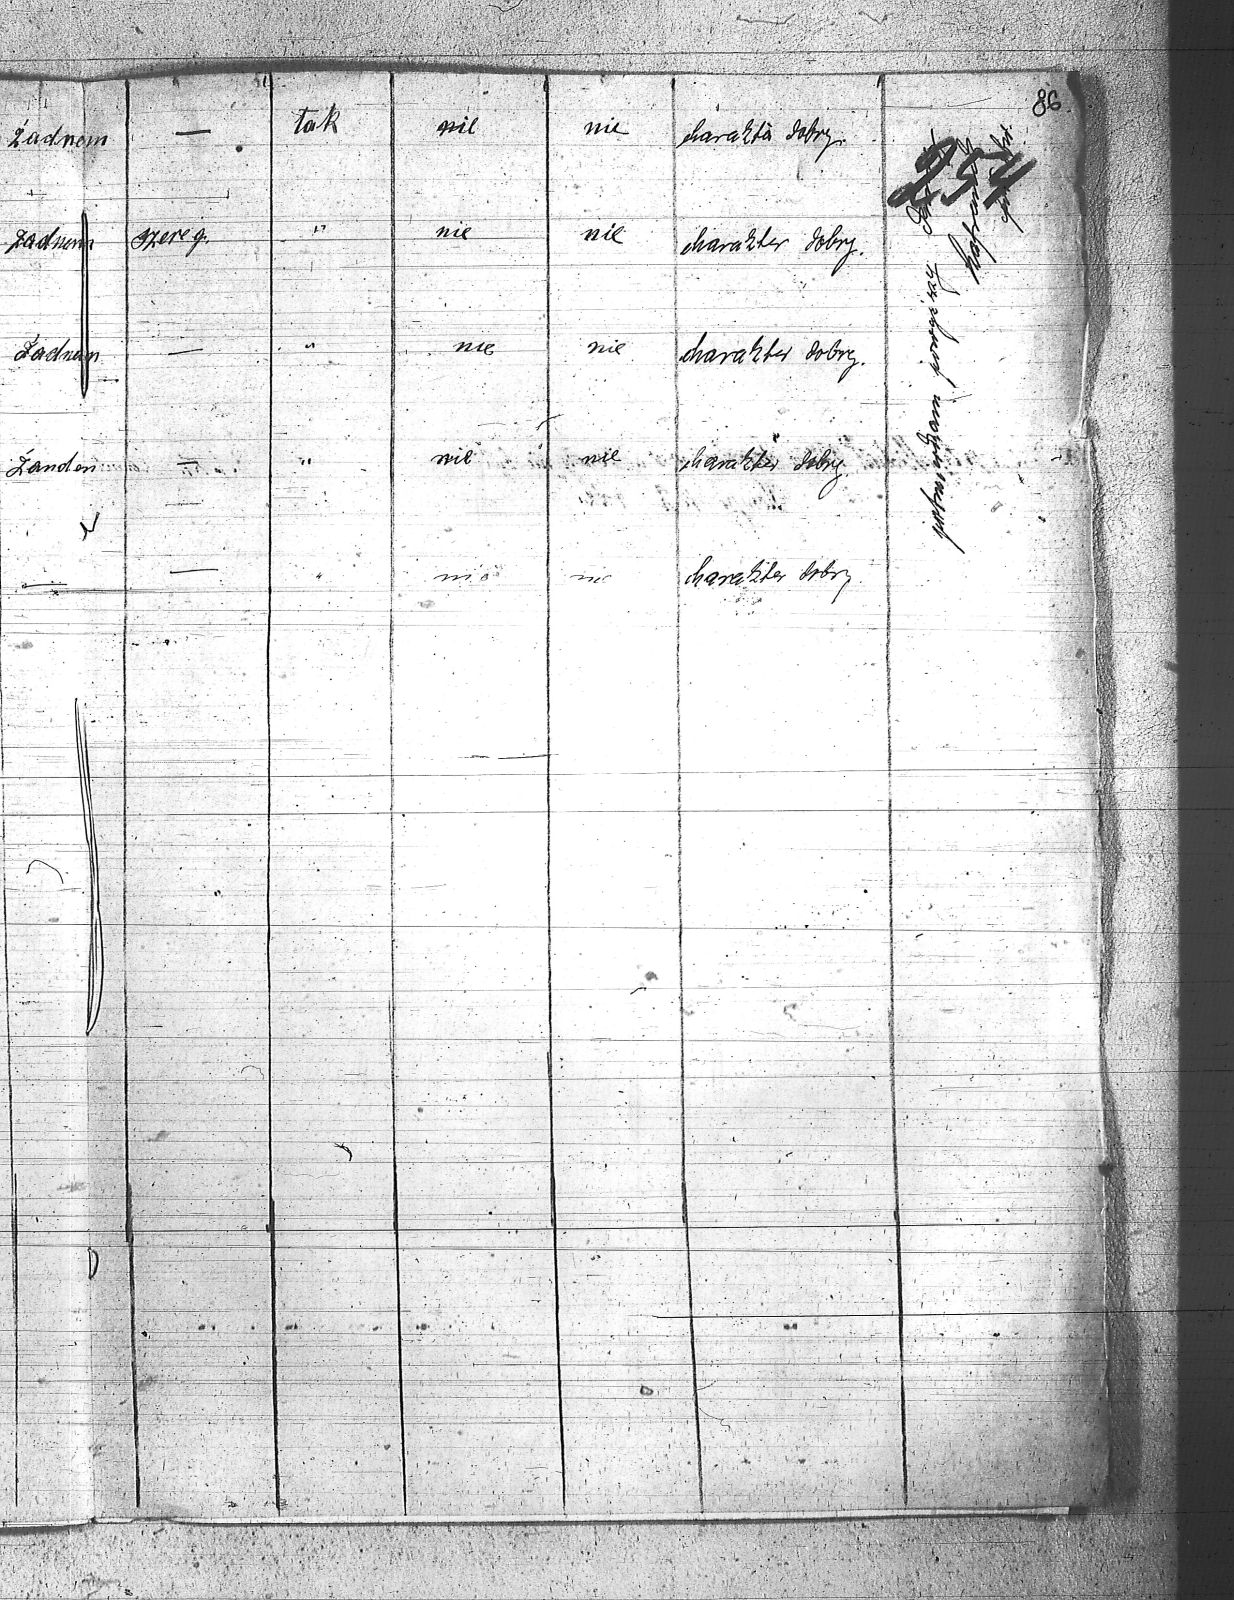 86
254
Żadnem — tak nie nie charakter dobry.
Żadnem szereg. " nie nie charakter dobry.
Żadnem — " nie nie charakter dobry.
Żanden — " nie nie charakter dobry.
— — " nie nie charakter dobry